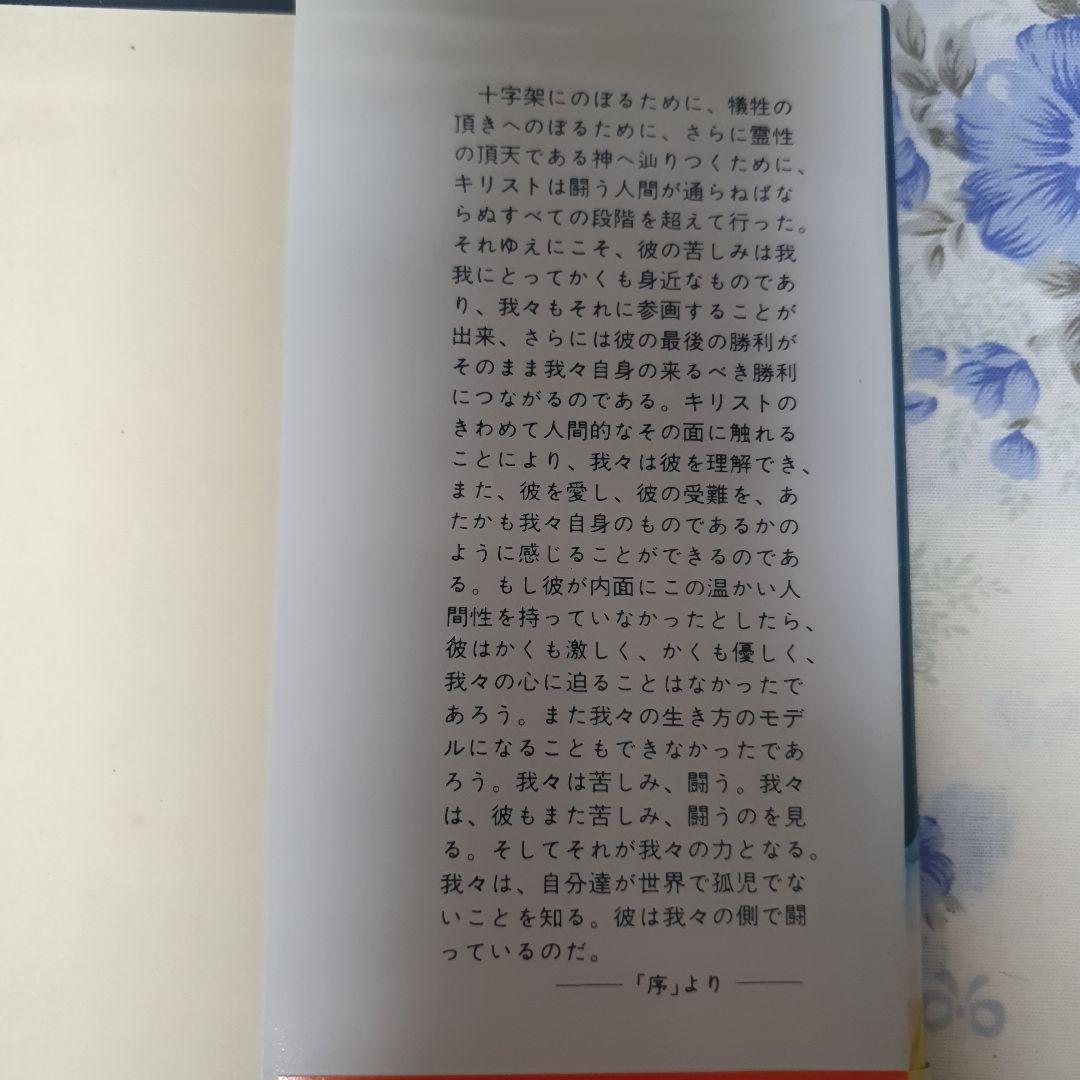 十字架にのぼるために、犠牲の
頂きへのぼるために、さらに霊性
の頂天である神へ辿りつくために、
キリストは闘う人間が通らねばな
らぬすべての段階を超えて行った。
それゆえにこそ、彼の苦しみは我
我にとってかくも身近なものであ
り、我々もそれに参画することが
出来、さらには彼の最後の勝利が
そのまま我々自身の来るべき勝利
につながるのである。キリストの
きわめて人間的なその面に触れる
ことにより、我々は彼を理解でき、
また、彼を愛し、彼の受難を、あ
たかも我々自身のものであるかの
ように感じることができるのであ
る。もし彼が内面にこの温かい人
間性を持っていなかったとしたら、
彼はかくも激しく、かくも優しく、
我々の心に迫ることはなかったで
あろう。また我々の生き方のモデ
ルになることもできなかったであ
ろう。我々は苦しみ、闘う。我々
は、彼もまた苦しみ、闘うのを見
る。そしてそれが我々の力となる。
我々は、自分達が世界で孤児でな
いことを知る。彼は我々の側で闘
っているのだ。
「序」より